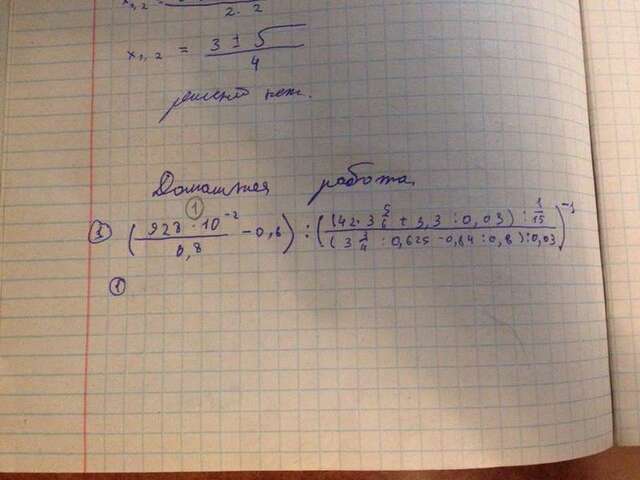 x₁,₂ =
2 · 2
x₁,₂ = 3 ± 5
4
решений нет.
Домашняя работа
①
① (928 · 10⁻² / 0,8 − 0,6) : ((42 · 3 5/6 + 3,3 : 0,03) : 1/15 / (3 3/4 : 0,625 − 0,84 : 0,8) : 0,03)⁻¹
①